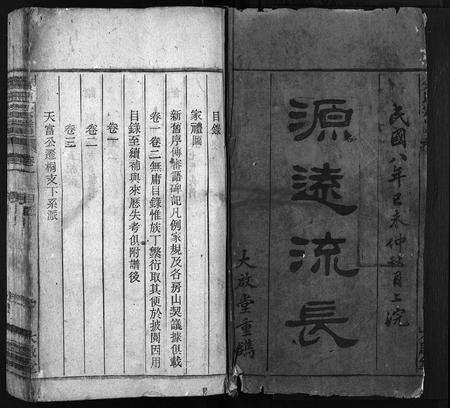 民國八年己未仲秋月上浣
源遠流長
大啟堂重鐫
目錄
家禮圖
新舊序傳誥語碑記凡例家規及各房山契議據俱載
卷一卷二無庸目錄惟族丁繁衍取其便於披閱因用
目錄至續補與來歷失考俱附譜後
卷一
卷二
卷三
天富公遷祠支下系派